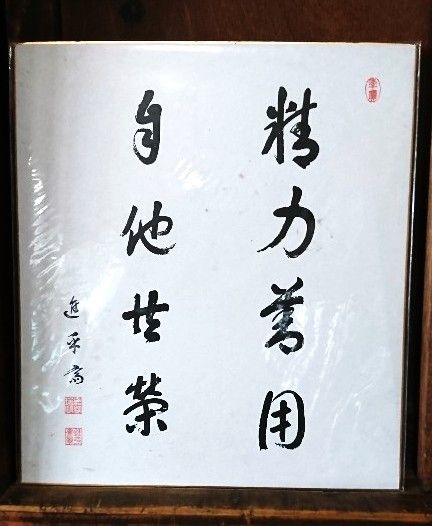 精力善用
自他共榮
進乎斎